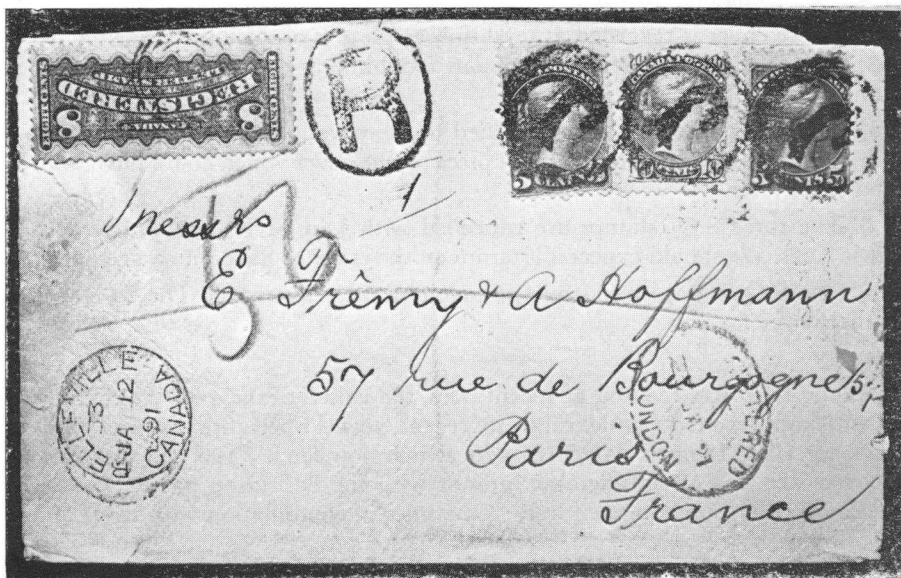 8 REGISTERED CANADA 8
R
5 CENTS 5
CANADA POSTAGE
5 CENTS 5
1
Messrs
E Frêmy & A Hoffmann
57 rue de Bourgogne
Paris
France
BELLEVILLE
JA 12
91
CANADA
REGISTERED
LONDON